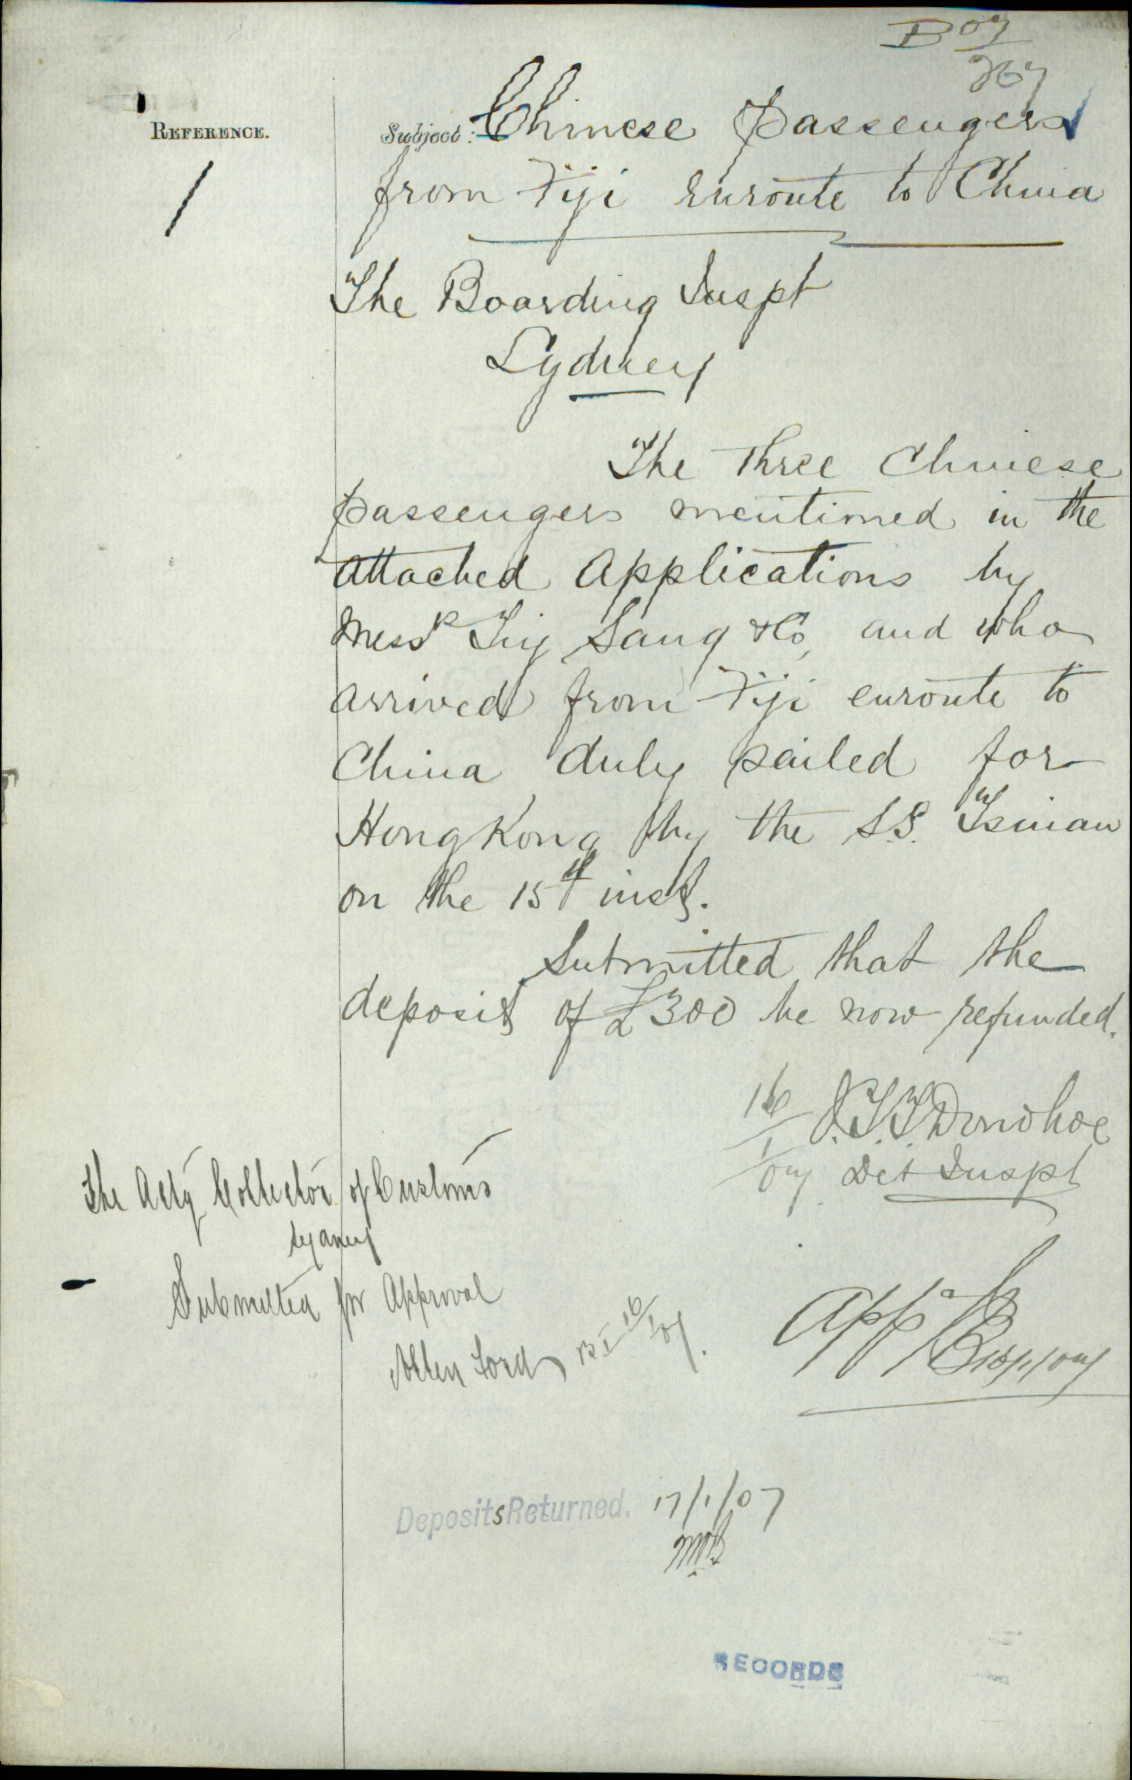 B 07
267
REFERENCE.
Subject: Chinese passengers
from Fiji enroute to China
The Boarding Inspt
Sydney
The three Chinese
passengers mentioned in the
attached applications by
Messrs Tiy Sang & Co, and who
arrived from Fiji enroute to
China duly sailed for
Hong Kong by the S.S. Tsinan
on the 15th inst.
Submitted that the
deposit of £300 be now refunded.
16/1/07 J.T.T. Donohoe
Det Inspt
The Actg Collector of Customs
Sydney
Submitted for Approval
Allen Lord BI 16/1/07.
Appd
Deposits Returned. 17/1/07
RECORDS